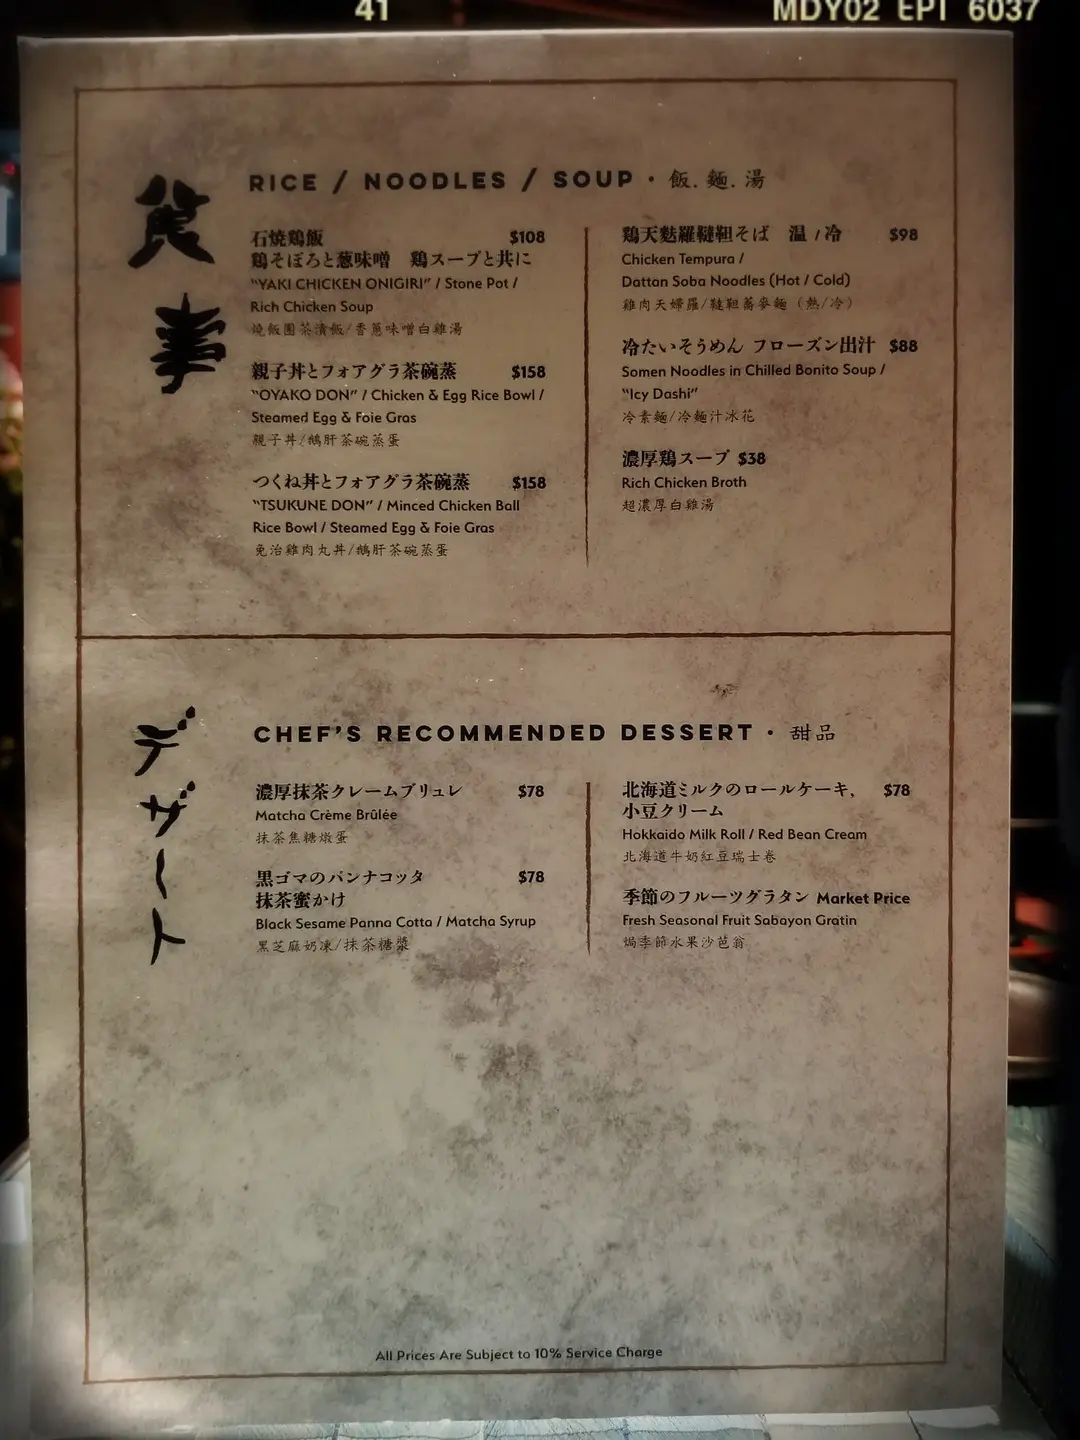 41
MDY02 EPI 6037
食事
RICE / NOODLES / SOUP · 飯.麵.湯
石焼鶏飯 $108
鶏そぼろと葱味噌 鶏スープと共に
"YAKI CHICKEN ONIGIRI" / Stone Pot /
Rich Chicken Soup
燒飯團茶漬飯/香蔥味噌白雞湯
親子丼とフォアグラ茶碗蒸 $158
"OYAKO DON" / Chicken & Egg Rice Bowl /
Steamed Egg & Foie Gras
親子丼/鵝肝茶碗蒸蛋
つくね丼とフォアグラ茶碗蒸 $158
"TSUKUNE DON" / Minced Chicken Ball
Rice Bowl / Steamed Egg & Foie Gras
免治雞肉丸丼/鵝肝茶碗蒸蛋
鶏天麩羅韃靼そば 温 / 冷 $98
Chicken Tempura /
Dattan Soba Noodles (Hot / Cold)
雞肉天婦羅/韃靼蕎麥麵（熱/冷）
冷たいそうめん フローズン出汁 $88
Somen Noodles in Chilled Bonito Soup /
"Icy Dashi"
冷素麵/冷麵汁冰花
濃厚鶏スープ $38
Rich Chicken Broth
超濃厚白雞湯
デザート
CHEF'S RECOMMENDED DESSERT · 甜品
濃厚抹茶クレームブリュレ $78
Matcha Crème Brûlée
抹茶焦糖燉蛋
黒ゴマのパンナコッタ $78
抹茶蜜かけ
Black Sesame Panna Cotta / Matcha Syrup
黑芝麻奶凍/抹茶糖漿
北海道ミルクのロールケーキ、 $78
小豆クリーム
Hokkaido Milk Roll / Red Bean Cream
北海道牛奶紅豆瑞士卷
季節のフルーツグラタン Market Price
Fresh Seasonal Fruit Sabayon Gratin
焗季節水果沙芭翁
All Prices Are Subject to 10% Service Charge